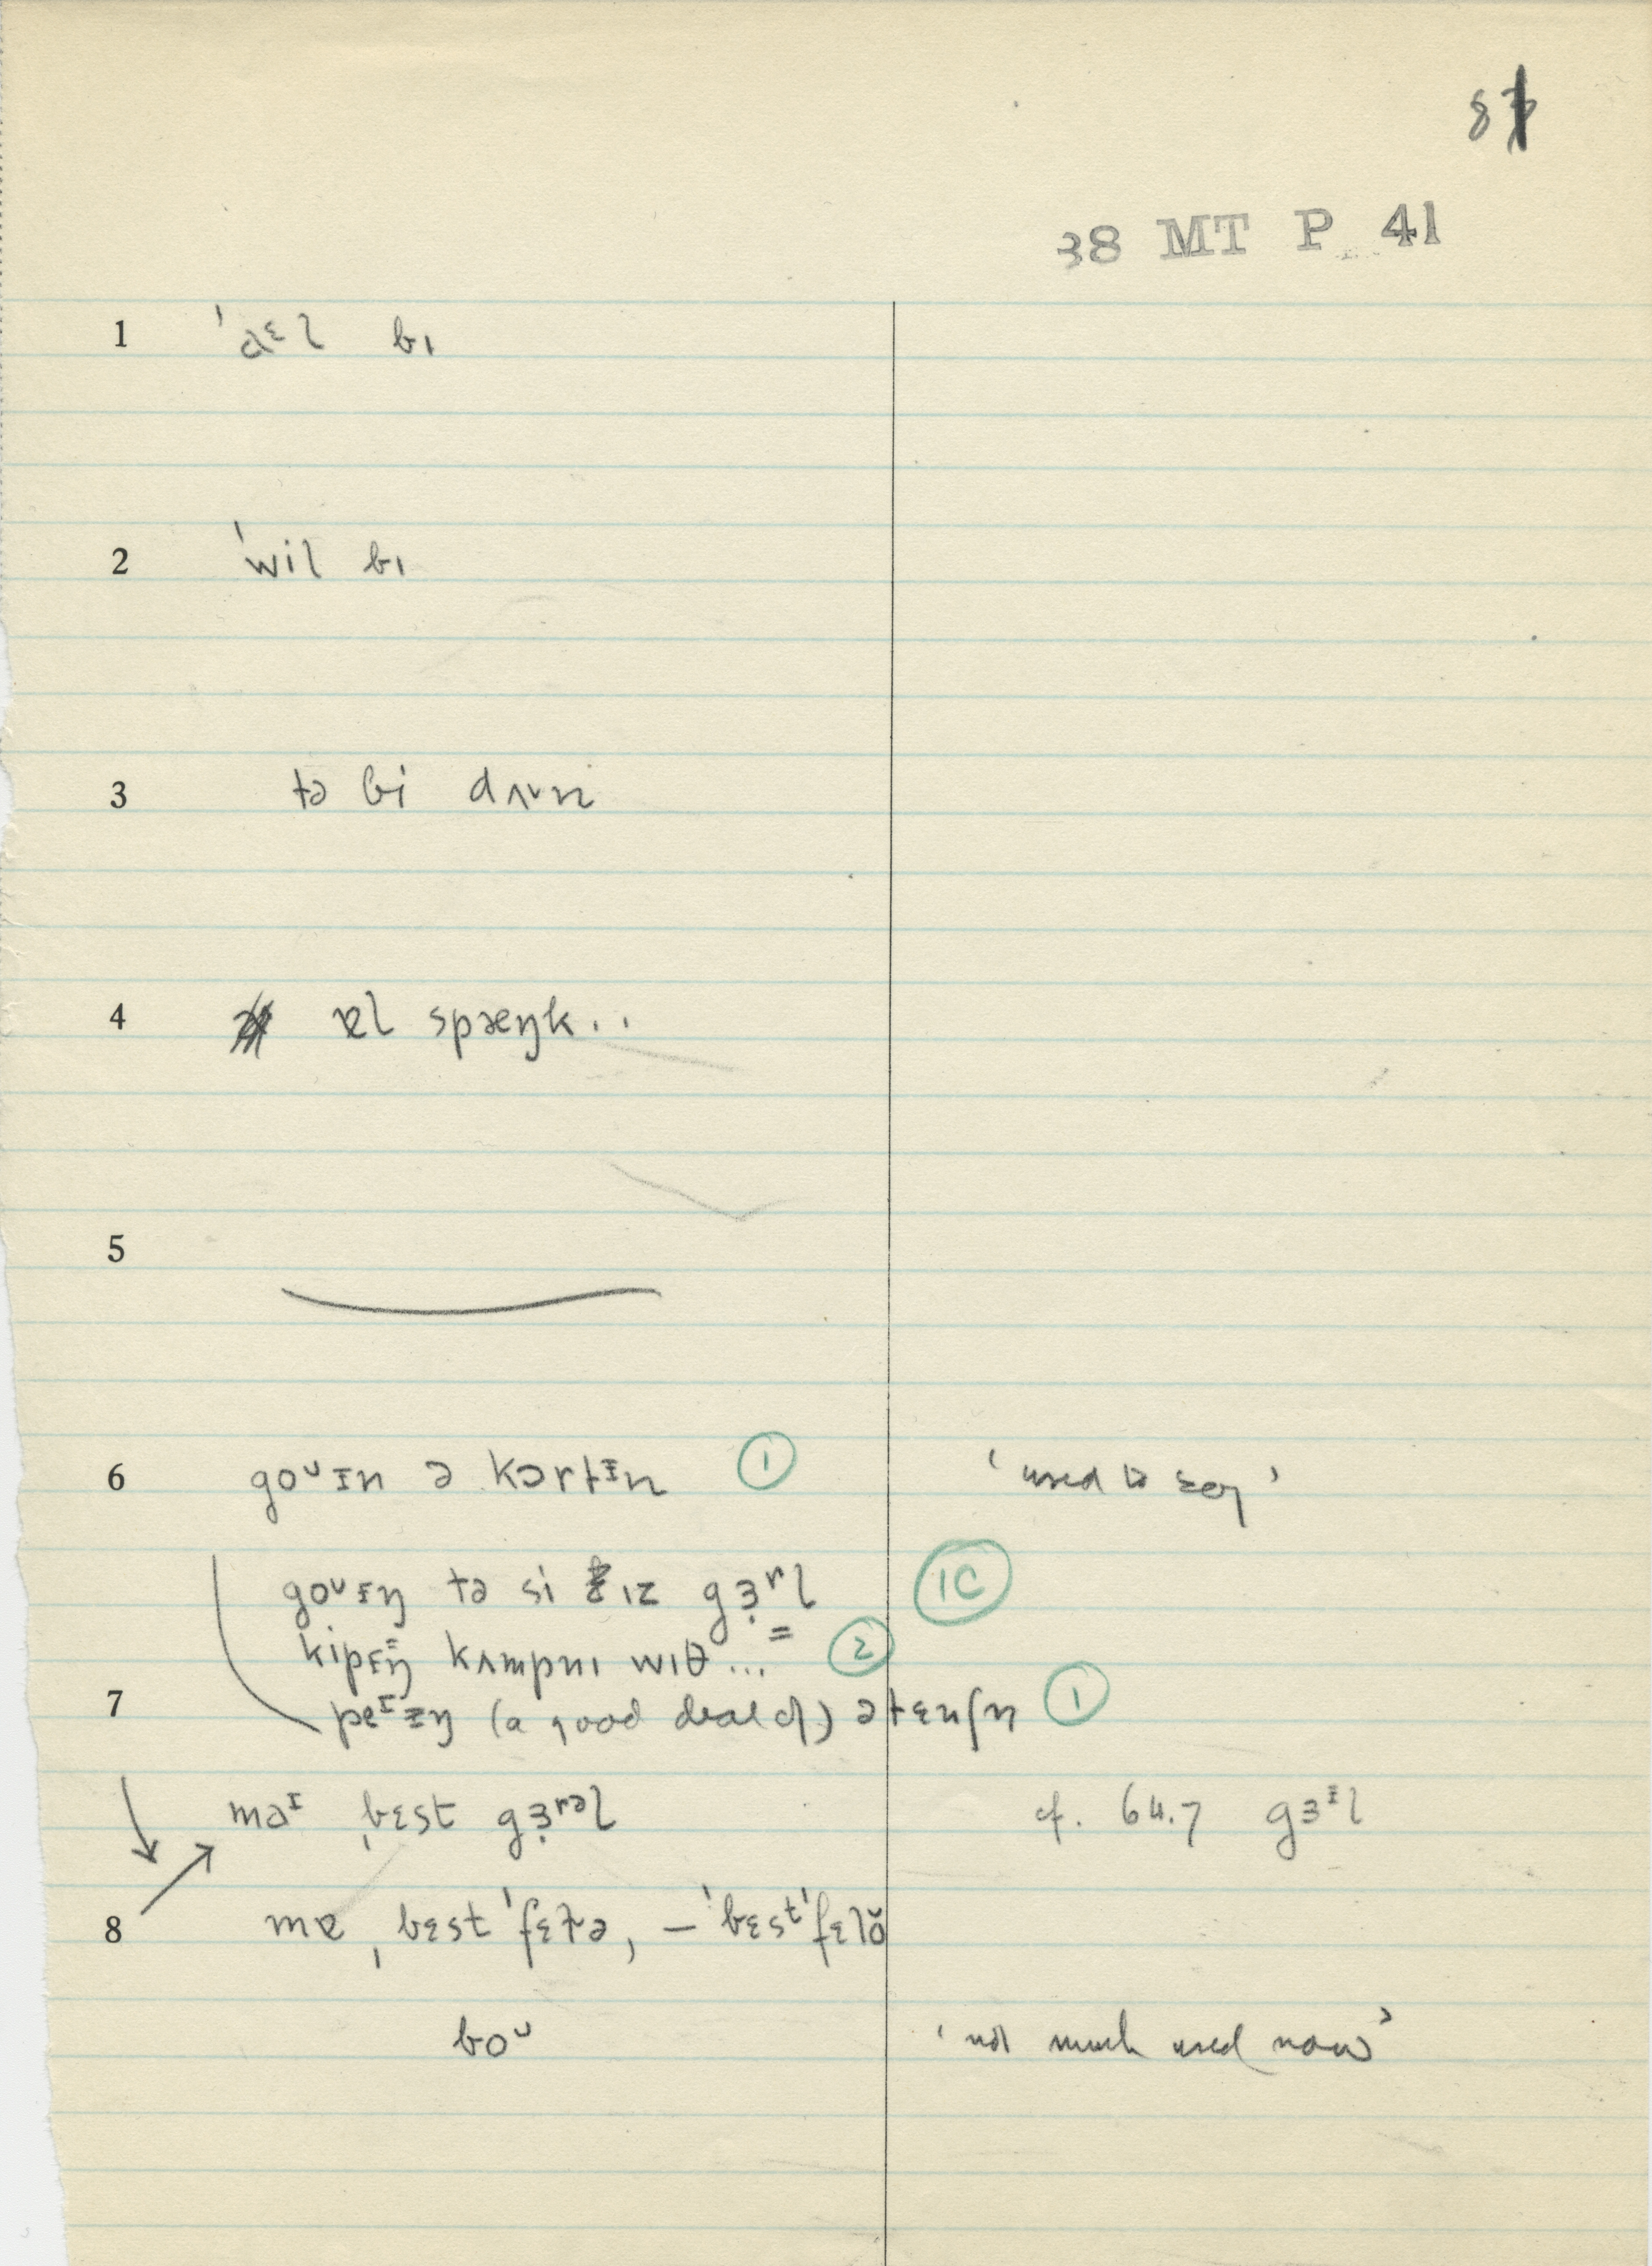 8
38 MT P 41
1 ˈaᵋl bı
2 ˈwil bı
3 tə bi dʌᴜn
4 ɐl spæŋk..
5
6 goᴜɪn ə kɔrtɪn 1 'used to say'
goᴜɪŋ tə si ız gɜʳl 1C
kipɪŋ kʌmpnı wıθ... 2
7 peᶦɪŋ (a good deal of) ətɛnʃn 1
maᶦ ˌbɛst gɜʳᵊl cf. 64.7 gɜᶦl
8 mɐ ˌbɛst ˈfɛɫə, – ˈbɛstˈfɛlŏ
boᴜ 'not much used now'